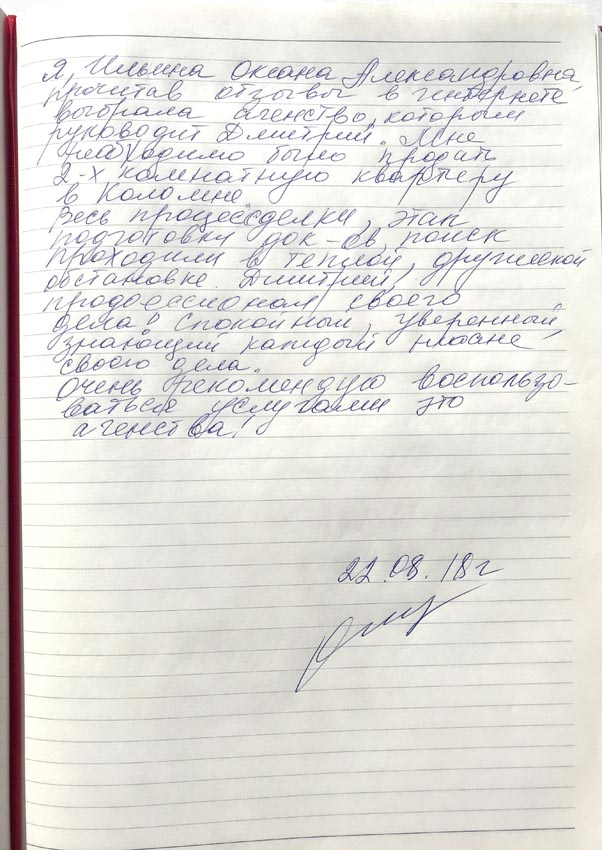 Я, Ильина Оксана Александровна
прочитав отзывы в интернете
выбрала агенство, которым
руководит Дмитрий. Мне
необходимо было продать
2-х комнатную квартиру
в Коломне
Весь процесс сделки, этап
подготовки док-ов, поиск
проходили в теплой, дружеской
обстановке. Дмитрий,
профессионал своего
дела! Спокойный, уверенный,
знающий каждый нюанс
своего дела.
Очень рекомендую воспользо-
ваться услугами это
агенства!
22.08.18г